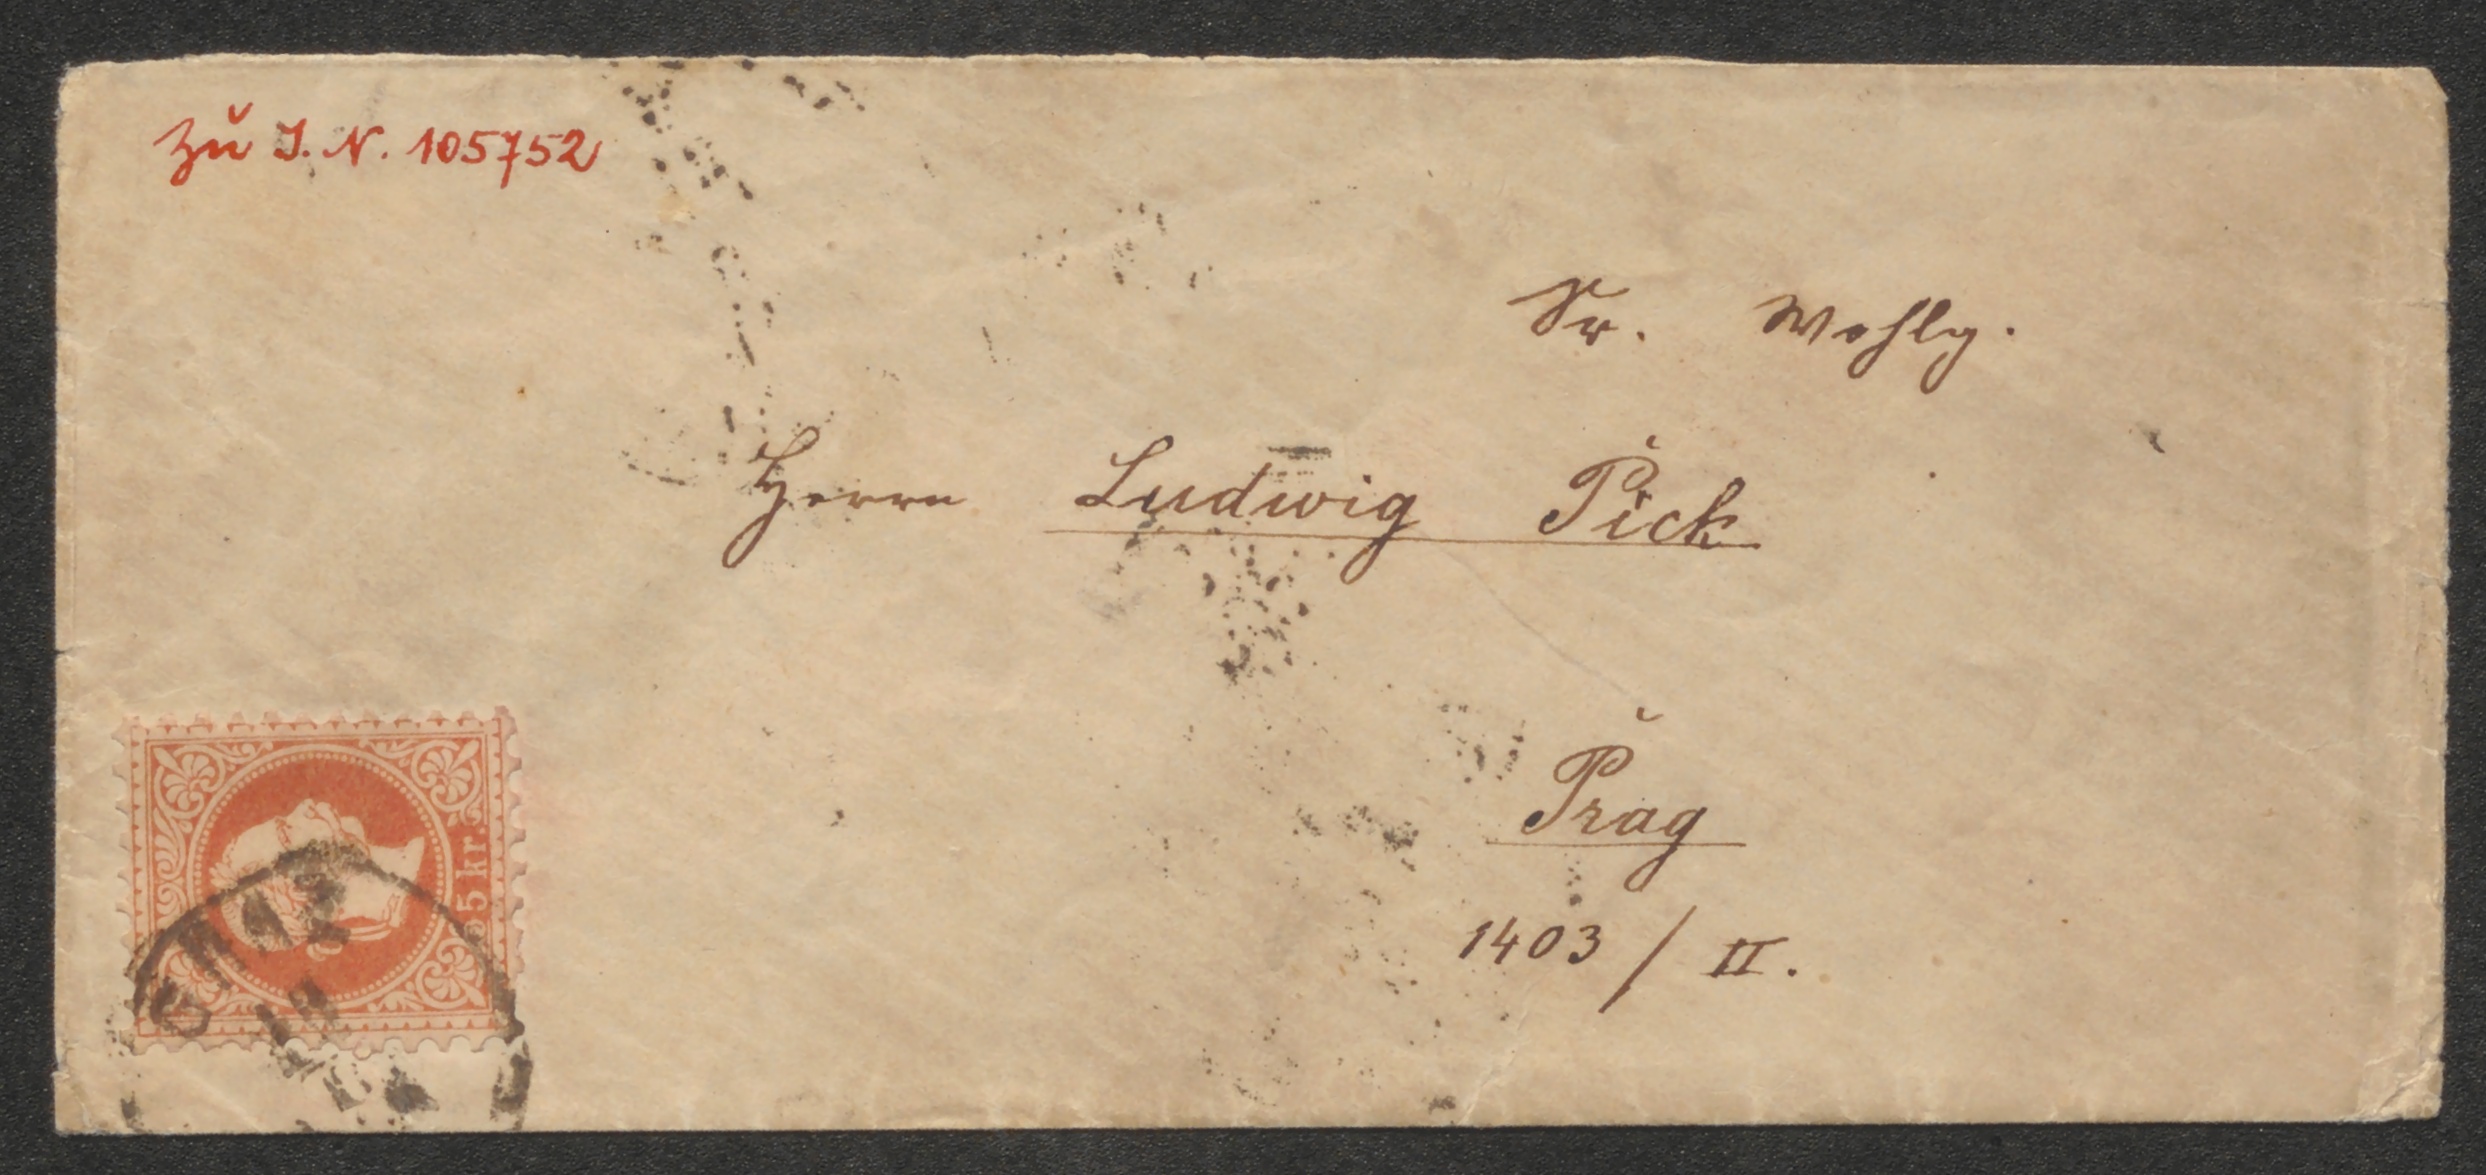 Zu J. N. 105752
Sr. Wohlg.
Herrn Ludwig Pick
Prag
1403 / II.
5 kr.